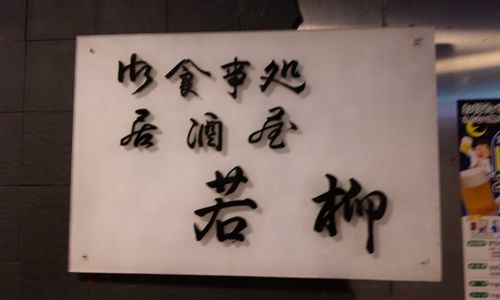 御食事処
居酒屋
若柳